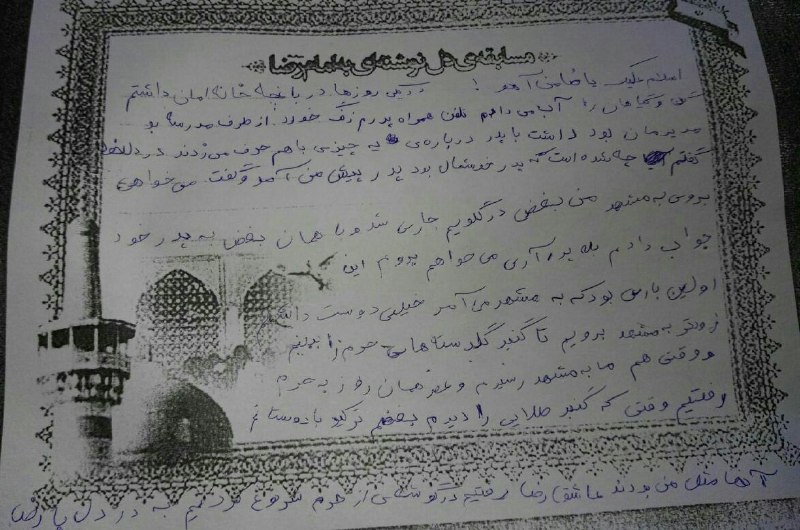 مسابقه‌ی دل نوشته‌ای به امام رضا
السلام علیک یا ضامن آهو ! یکی روزها در باغچه خانه امان داشتم
و گیاهان را آب می دادم تلفن همراه پدرم زنگ خورد از طرف مدرسه بو
مدیرمان بود داشت با پدر درباره‌ی یه چیزی با هم حرف می زدند در دلم
گفتم چه شده است که پدر خوشحال بود پدر پیش من آمد و گفت می خواهی
بروی به مشهد من بغض در گلویم جاری شد و با همان بغض به پدر خود
جواب دادم بله پدر آری می خواهم بروم این
اولین باری بود که به مشهد می آمد خیلی دوست داشتم
زودتر به مشهد برویم تا گنبد گلدسته هایی حرم را ببینم
و وقتی هم ما به مشهد رسیدم و عصر همان روز به حرم
رفتیم وقتی که گنبد طلایی را دیدم بغضم ترکید با دوستانم
آنها مثل من بودند عاشق رضا رفتیم در گوشه ای از حرم شروع کردیم به درد دل با رضا